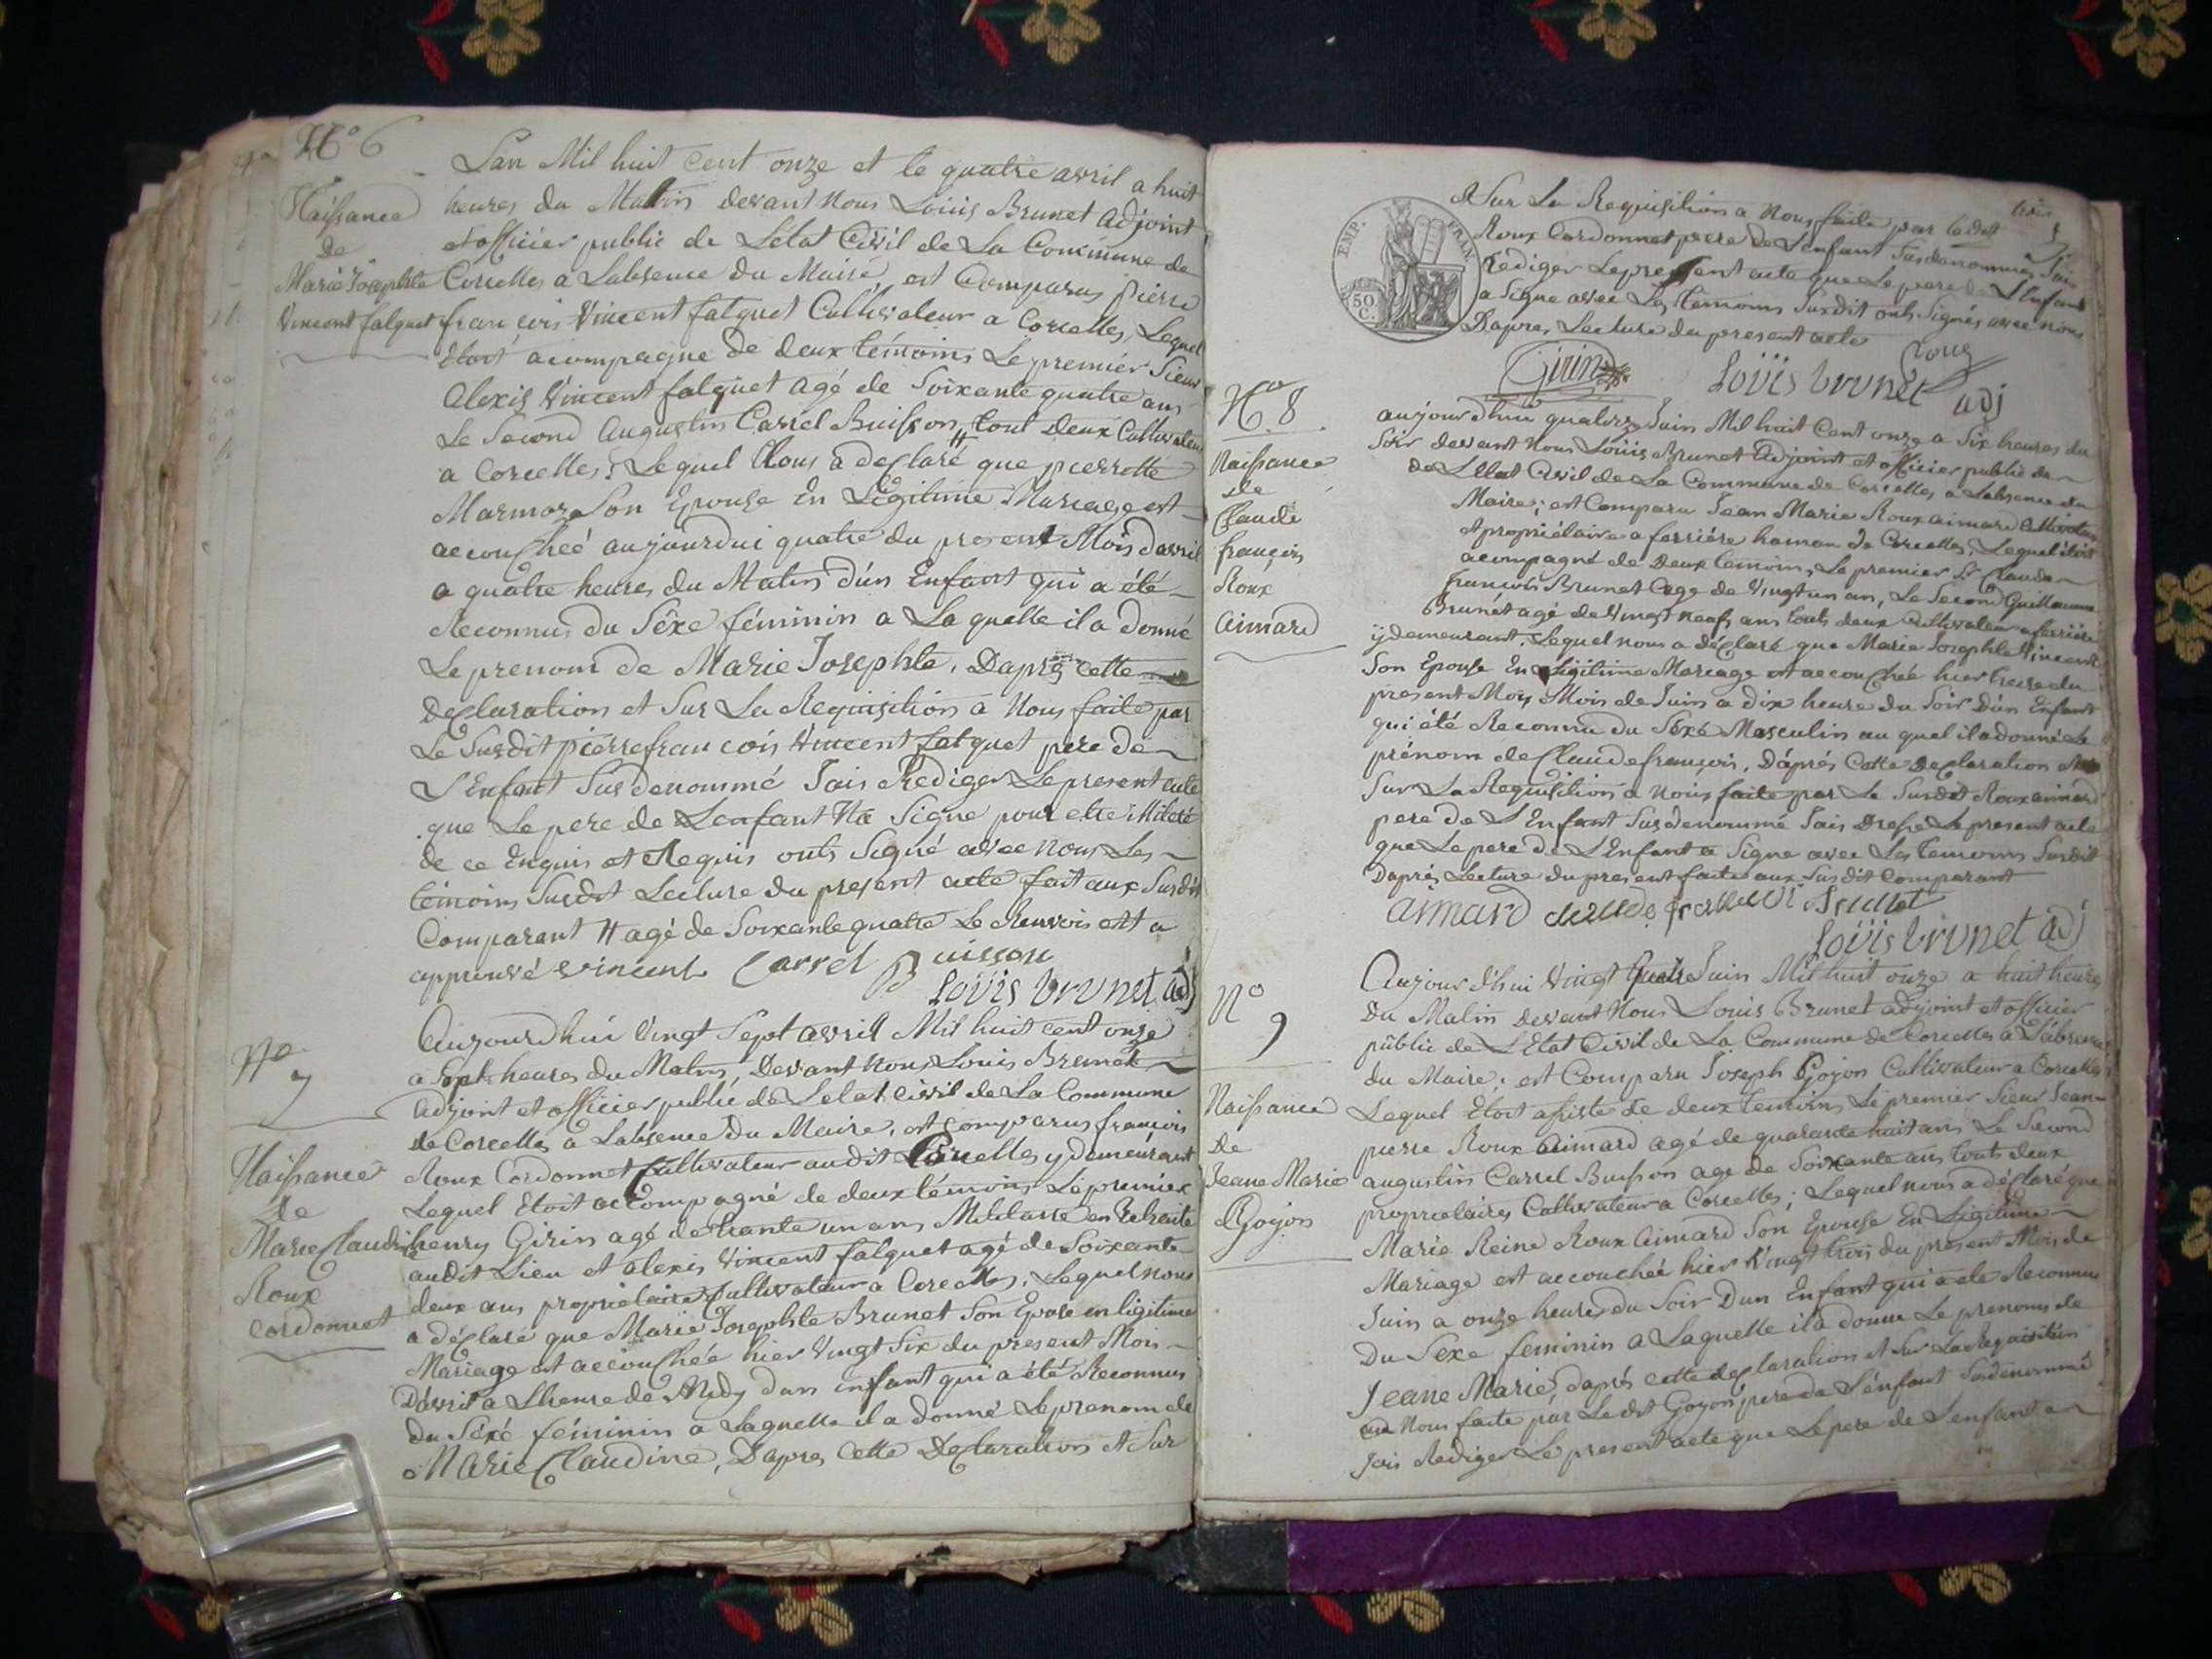 No 6
Naissance
de
Marie Josephte
Vincent falquet
Lan Mil huit Cent onze et le quatre avril a huit
heures du Matin devant Nous Louis Brunet adjoint
et officier public de L'état Civil de La Commune de
Corcelles a Labsence du Maire, est Comparus pierre
francois Vincent falquet Cultivateur a Corcelles, Lequel
Etoit acompagne de deux témoins Le premier Sieur
Alexis Vincent falquet agé de Soixante quatre ans
Le Second Augustin Carrel Buisson, tout deux Cultivateur
a Corcelles; Lequel Nous a declaré # que pierrotte
Marmoz Son Epouse En Légitime Mariage est
accouchéé aujourdui quatre du present Mois davril
a quatre heures du Matin d'un Enfant qui a été
Reconnus du Séxe féminin a La quelle il a donné
Le prenom de Marie Josephte. Daprés cette
Declaration et Sur La Requisition a Nous faite par
Le Susdit pierre francois Vincent falquet pere de
L'Enfant Susdenommé Jais Rediger Le present acte
que Le pere de Lenfant Na Signe pour etre iliteré
de ce Enquis et Requis onts Signé avec nous Les
témoins Susdit Lecture du present acte fait aux Susdit
Comparant # agé de Soixante quatre Le Renvois est a
approuvé vincent Carrel Buisson
Louis brunet adj
No
7
Naissance
de
Marie Claudine
Roux
Cordonnet
Aujourdhui Vingt Sept avril Mil huit cent onze
a Sept heures du Matin, Devant nous Louis Brunet
adjoint et officier public de Letat Civil de La Commune
de Corcelles a Labsence du Maire, est comparus francois
Roux Cordonnet Cultivateur audit Corcelles y demeurant
Lequel Etoit accompagné de deux témoins Le premier
henry Girin agé de trante un ans Militaire en Retraite
audit Lieu et alexis Vincent falquet agé de Soixante
deux ans propriétaire Cultivateur a Corcelles. Lequel nous
a déclaré que Marie Josephte Brunet Son Epose en ligitime
Mariage est accouchée hier Vingt Six du present Mois
Davril a Lheure de Midy dun enfant qui a été Reconnus
du Séxe féminin a Laquelle il a donné Le prenom de
Marie Claudine, Dapres Cette Declaration et Sur
trois
EMP. FRAN.
50
C.
et Sur La Requisition a Nous faite par Ledit
Roux Cordonnet pere de L'enfant Susdenommé Jais
Rediger Le present acte que Le pere de L'Enfant
a Signe avec Les témoins Susdit onts Signés avec nous
Dapres Lecture du present acte
Girin Roux
Louis brunet adj
No 8
Naissance
de
Claude
françois
Roux
aimard
aujourdhui quatorze Juin Mil huit Cent onze a Six heures du
Soir devant Nous Louis Brunet adjoint et officier public de
de Létat Civil de La Commune de Corcelles a Labsence du
Maire; est Comparu Jean Marie Roux aimard Cultivateur
et propriétaire a ferriére hamau de Corcelles, Lequel étoit
acompagné de Deux temoins, Le premier Sr Claude
francois Brunet age de Vingt un an, Le Second Guillaume
Brunet agé de Vingt neuf ans touts deux Cultivateur a ferriére
y demeurant. Lequel nous a déclaré que Marie Josephte Vincent
Son Epouse En Légitime Mariage est accouchée hier treize du
present Mois Mois de Juin a dix heure du Soir D'un Enfant
qui été Reconnu du Séxe Masculin au quel il a donné Le
prénom de Claude françois, D'áprés Cette Declaration et
Sur La Requisition a Nous faite par Le Susdit Roux aimard
pere de L'Enfant Susdenommé Jais Dressé Le present acte
que Le pere de L'Enfant a Signe avec Les témoins Susdit
Daprés Lecture du present faite aux Susdit Comparant
aimard claude francois Brunet
Louis brunet adj
No
9
Naissance
De
Jeane Marie
Goyon
Aujour d'hui Vingt Quatre Juin Mil huit onze a huit heure
Du Matin Devant Nous Louis Brunet adjoint et officier
public de L'Etat Civil de La Commune de Corcelles a L'absence
du Maire; est Comparu Joseph Goyon Cultivateur a Corcelles
Lequel Etoit assiste de deux temoins Le premier Sieur Jean
pierre Roux aimard agé de quarante huit ans Le Second
augustin Carrel Buisson age de Soixante ans touts deux
propriétaires Cultivateur a Corcelles; Lequel nous a déclaré que
Marie Reine Roux aimard Son Epouse En Légitime
Mariage est accouchéé hier Vingt trois du present Mois de
Juin a onze heure du Soir Dun Enfant qui a éte Reconnue
Du Séxe feminin a Laquelle il a donne Le prenoms de
Jeane Marie, daprés cette declaration et Sur La Requisition
a Nous faite par Ledit Goyon pere de L'énfant Susdenommé
Jais Rediger Le present acte que Le pere de Lenfant a